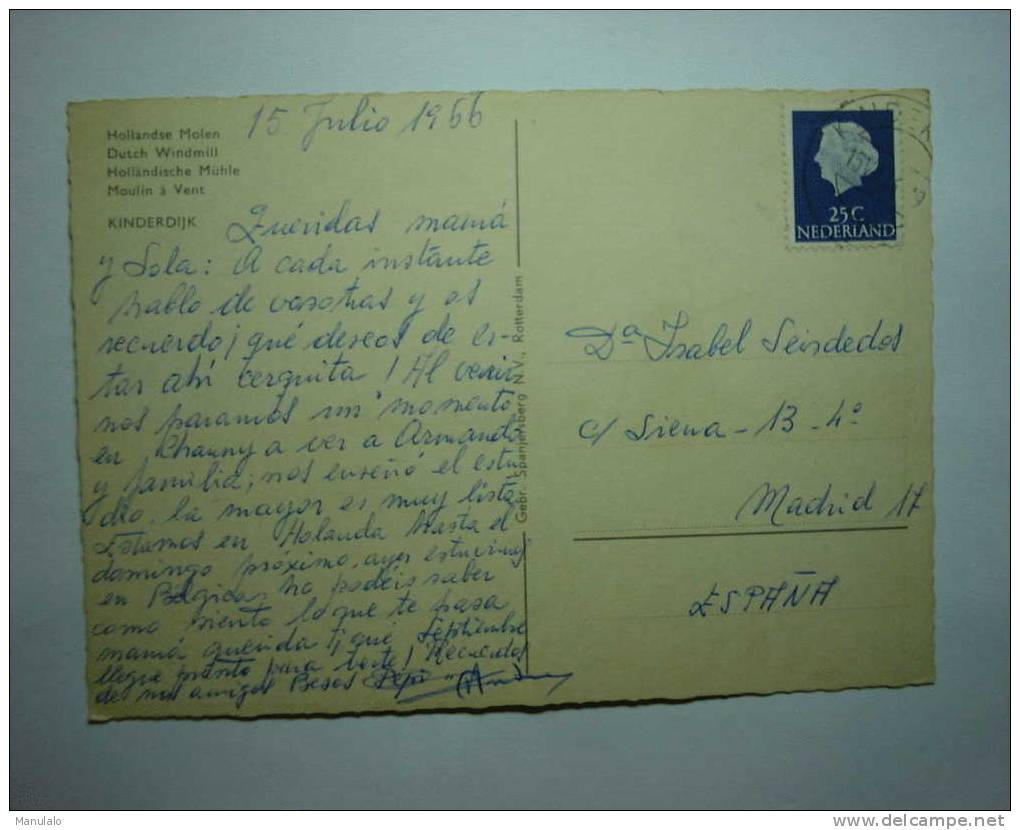 15 Julio 1966
Hollandse Molen
Dutch Windmill
Holländische Mühle
Moulin à Vent
KINDERDIJK
Queridas mamá
y Lola: A cada instante
hablo de vosotras y os
recuerdo ¡qué deseos de es-
tar ahí cerquita! Al venir
nos paramos un momento
en Chauny a ver a Armando
y familia; nos enseñó el estu
dio. la mayor es muy lista.
Estamos en Holanda hasta el
domingo próximo, ayer estuvimos
en Bélgica; no podéis saber
como siento lo que te pasa
mamá querida ¡¡qué Septiembre
llegue pronto para verte! Recuerdos
de mis amigos Besos Pepi
Gebr. Spanjersberg N.V., Rotterdam
25C
NEDERLAND
Dª Isabel Seisdedos
c/ Siena - 13 - 4º
Madrid 17
ESPAÑA
Manulalo
delcampe.net